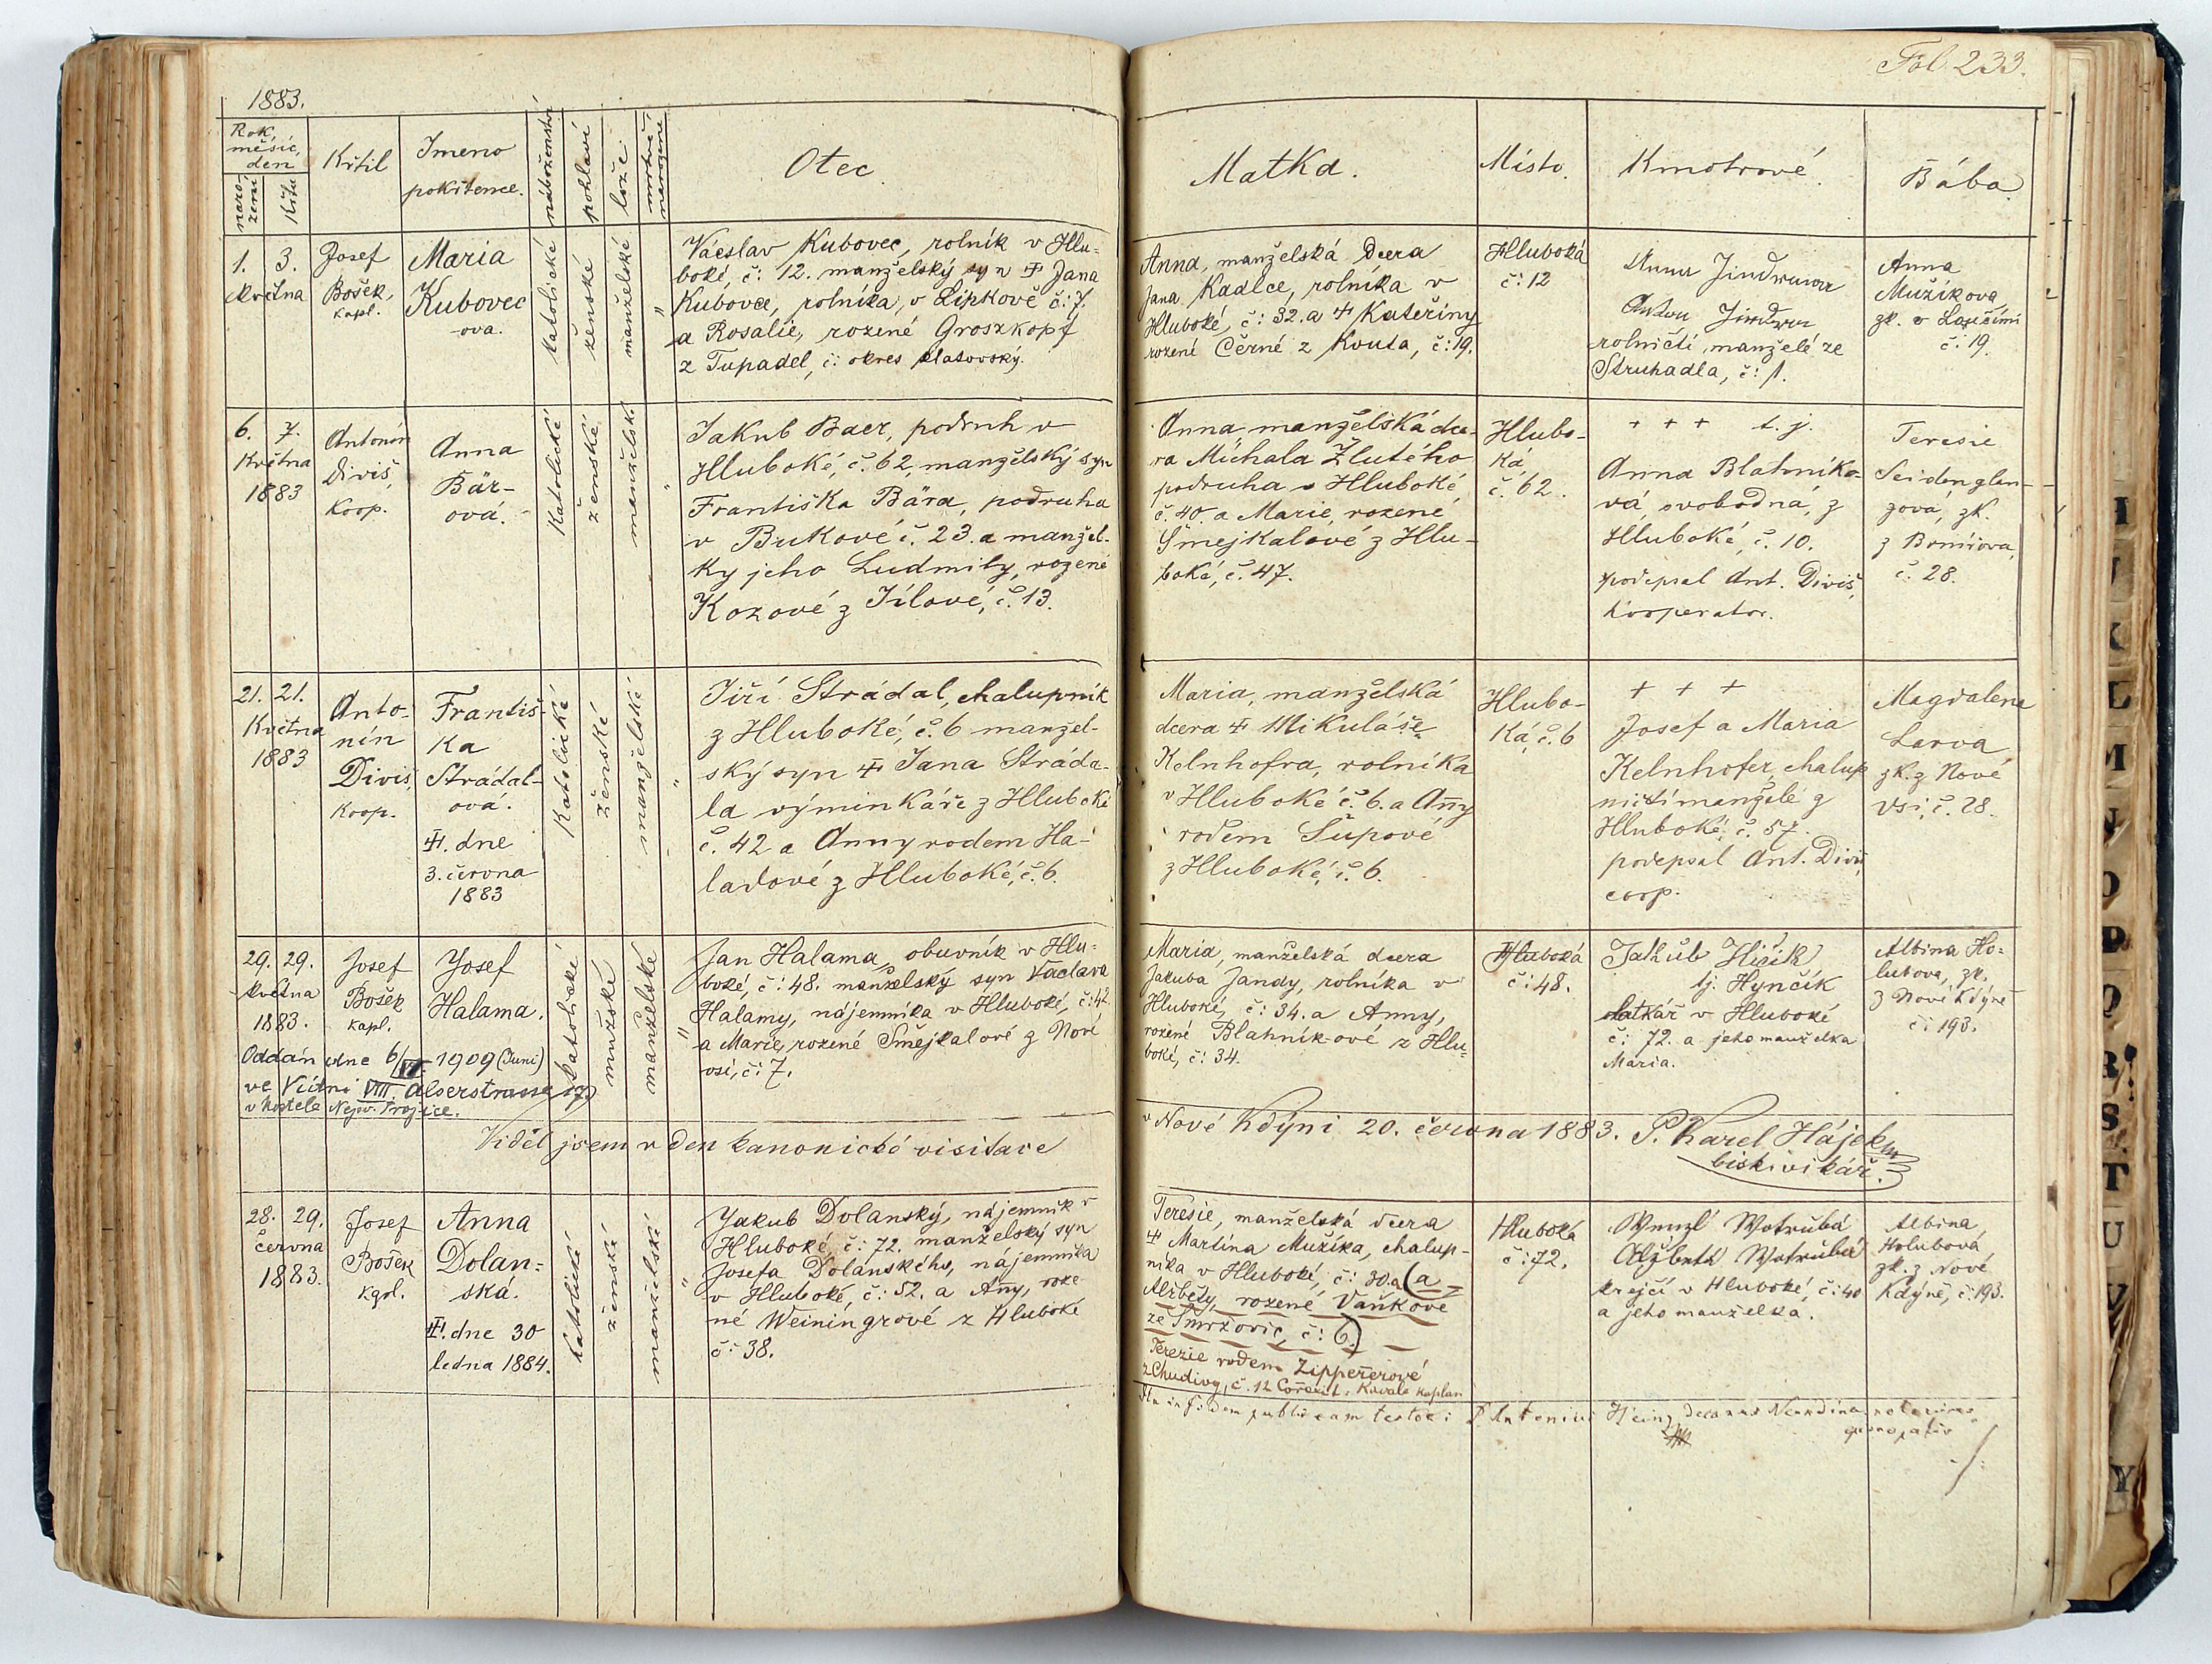 1883.
Fol. 233.
Rok,
měsíc,
den
naro-
zení
křtu
Křtil
Jmeno
pokřtence.
náboženství
pohlaví
lože
mrtvě
narozené
Otec.
Matka.
Místo.
Kmotrové.
Bába.
1. 3.
května
Josef
Bošek,
kapl.
Maria
Kubovec
-ova.
katolické
ženské
manželské
"
Václav Kubovec, rolník v Hlu-
boké, č: 12. manželský syn ♰ Jana
Kubovce, rolníka, v Lipkově č: 7,
a Rosalie, rozené Groszkopf
z Tupadel, č: okres klatovský.
Anna, manželská dcera
Jana Kadlce, rolníka v
Hluboké, č: 32. a ♰ Kateřiny
rozené Černé z Kouta, č: 19.
Hluboká
č: 12
Anna Jindrova
Anton Jindra
rolničtí manželé ze
Struhadla, č: 1.
Anna
Mužíkova,
zk. v Loučimi
č: 19.
6. 7.
Května
1883
Antonín
Diviš,
Koop.
Anna
Bär-
ová.
Katolické
ženské
manželsk.
"
Jakub Baer, podruh v
Hluboké, č. 62, manželský syn
Františka Bära, podruha
v Bukové č. 23. a manžel-
ky jeho Ludmily, rozené
Kozové z Jílové, č. 13.
Anna manželská dce-
ra Michala Žlutého
podruha v Hluboké,
č. 40. a Marie, rozené
Šmejkalové z Hlu-
boké, č. 47.
Hlubo-
ká,
č. 62.
+ + + t. j.
Anna Blahníko-
vá, svobodná, z
Hluboké, č. 10.
podepsal Ant. Diviš,
kooperator.
Teresie
Seidenglan-
zová, zk.
z Brnířova,
č. 28.
21. 21.
Května
1883
Anto-
nín
Diviš,
Koop.
Františ-
ka
Strádal-
ová.
♰. dne
3. června
1883
Katolické
ženské
manželské
"
Jiří Strádal, chalupník
z Hluboké, č. 6 manžel-
ský syn ♰ Jana Stráda-
la výminkáře z Hluboké
č. 42 a Anny rodem Ha-
ladové z Hluboké, č. 6.
Maria, manželská
dcera ♰ Mikuláše
Kelnhofra, rolníka
v Hluboké č. 6. a Anny
rodem Šupové
z Hluboké, č. 6.
Hlubo-
ká, č. 6
+ + +
Josef a Maria
Kelnhofer, chalup
ničtí manželé z
Hluboké, č. 57.
podepsal Ant. Diviš,
coop.
Magdalena
Larva
zk. z Nové
Vsi, č. 28.
29. 29.
května
1883.
Josef
Bošek
kapl.
Josef
Halama.
Oddán dne 6/VI. 1909 (Juni)
ve Vídni VIII. Alserstrasse 17)
v kostele Nejsv. Trojice.
katolické
mužské
manželské
"
Jan Halama, obuvník v Hlu-
boké, č: 48. manželský syn Václava
Halamy, nájemníka v Hluboké, č: 42.
a Marie, rozené Šmejkalové z Nové
vsi, č: 7.
Maria, manželská dcera
Jakuba Jandy, rolníka v
Hluboké, č: 34. a Anny,
rozené Blahník-ové z Hlu-
boké, č: 34.
Hluboká
č: 48.
Jakub Hičík
tj. Hynčík
látkář v Hluboké
č: 72. a jeho manželka
Maria.
Albina Ho-
lubova, zk.
z Nové Kdýně
č: 193.
Viděl jsem v den kanonické visitace
v Nové Kdýni 20. června 1883. P. Karel Hájek
bisk. vikář.
28. 29.
června
1883.
Josef
Bošek
kapl.
Anna
Dolan-
ská.
♰. dne 30
ledna 1884.
katolické
ženské
manželské
"
Jakub Dolanský, nájemník v
Hluboké, č: 72. manželský syn
Josefa Dolanského, nájemníka
v Hluboké, č: 52. a Anny, roze
né Weiningrové z Hluboké
č: 38.
Teresie, manželská dcera
♰ Martina Mužíka, chalup-
níka v Hluboké, č: 30. a (a
Alžběty, rozené Vaňkové
ze Smržovic, č: 6.)
Terezie rodem Zippererové
z Chudivy, č. 12 Correxit: Kavale kaplan
Hluboká
č: 72.
Wenzl Wotrubá
Alžbeta Wotrubá
krejčí v Hluboké, č: 40
a jeho manželka.
Albina
Holubová
zk. z Nové
Kdýně, č: 193.
in fidem publicam testor: P. Antonius